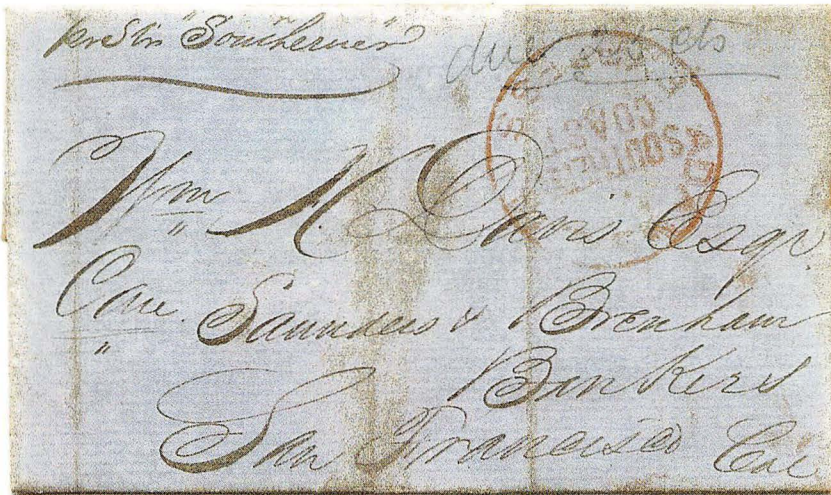 pr Str "Southerner"
due 25 cts
COAST
SOUTHERN
Wm H. Davis Esqr.
Care Saunders & Brenham
Bankers
San Francisco Cal